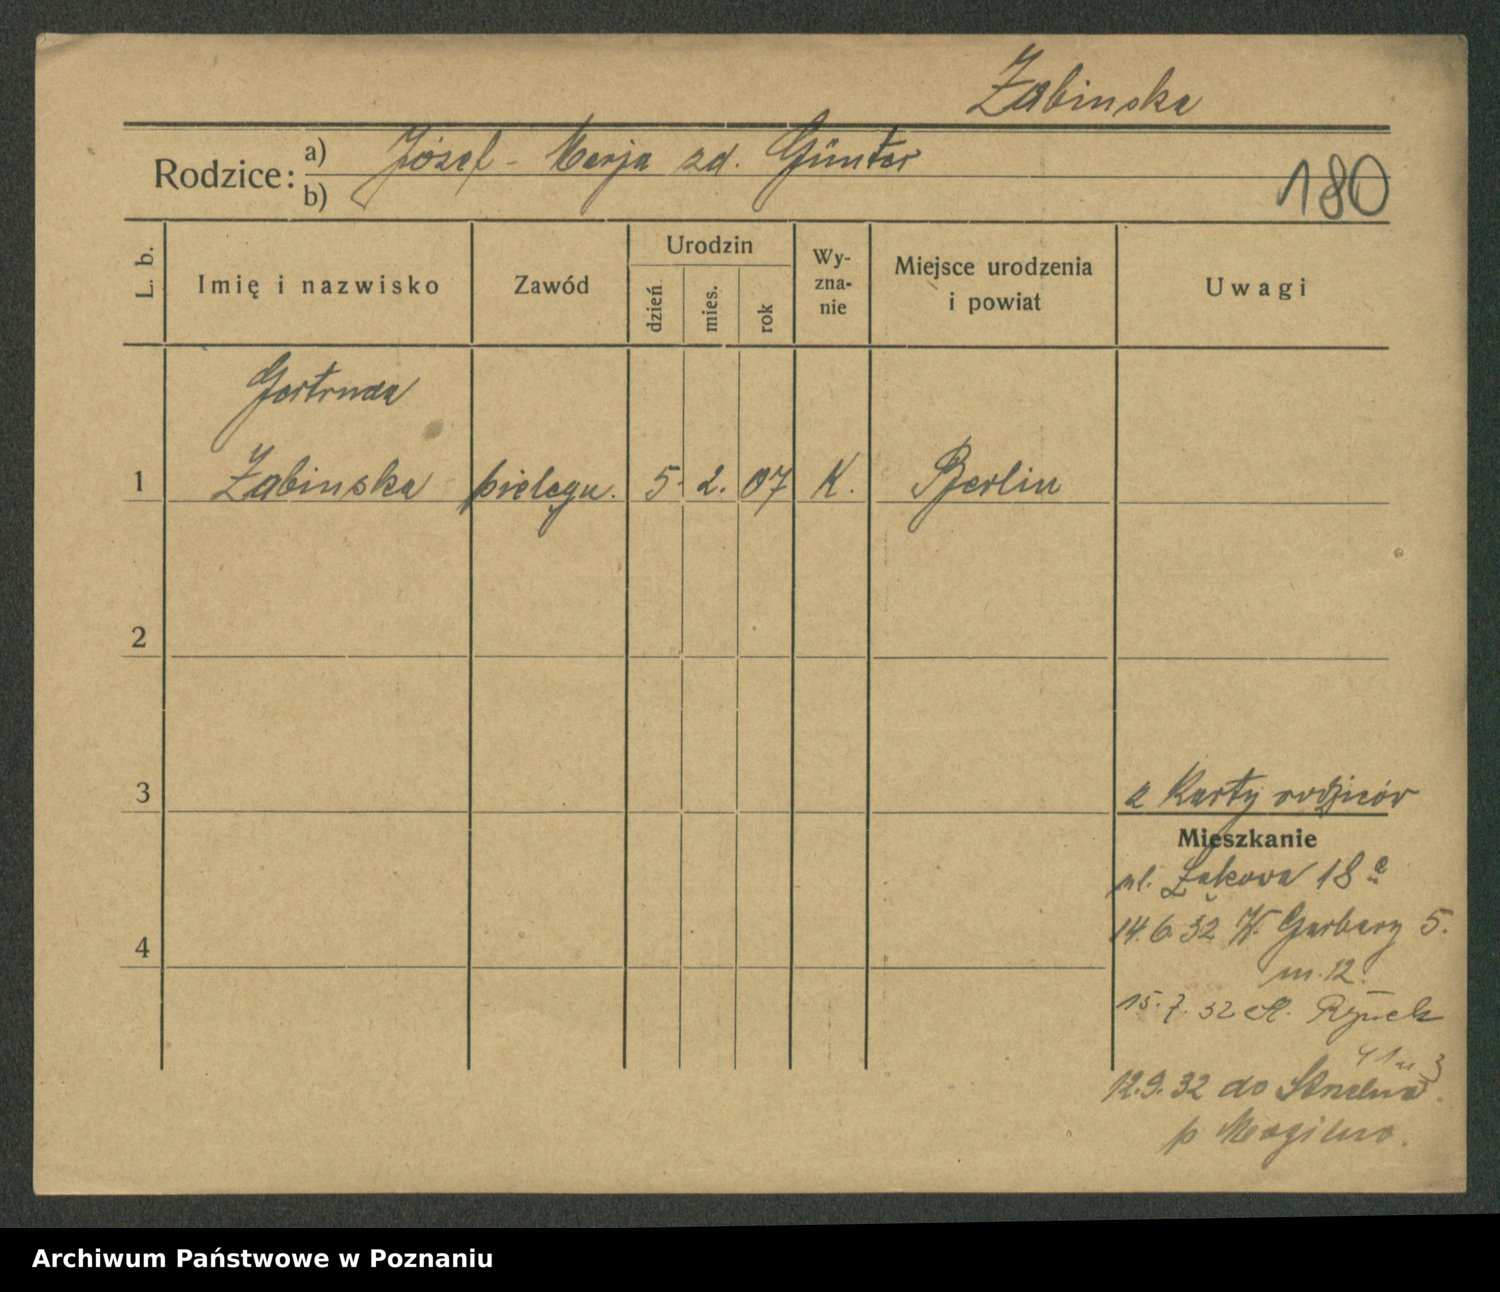 Żabinska
Rodzice:
a) Józef - Marja zd. Günter
b)
180
L. b.
Imię i nazwisko
Zawód
Urodzin
dzień
mies.
rok
Wy-
zna-
nie
Miejsce urodzenia
i powiat
Uwagi
Gertruda
1 Żabinska pielęgn. 5. 2. 07 K. Berlin
2
3
z Karty rodziców
Mieszkanie
ul. Łąkowa 18
14.6.32 W. Garbary 5.
m. 12.
15.7.32 St. Rynek
41 m 3
4
12.9.32 do Strzelna
p Mogilno.
Archiwum Państwowe w Poznaniu